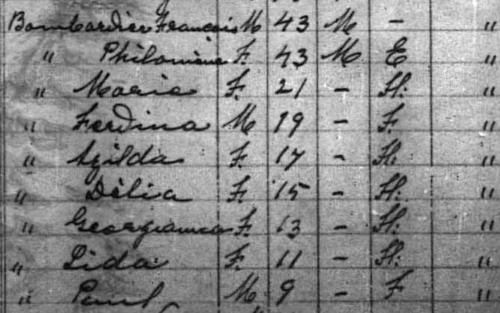 Bombardier François M 43 M - "
" Philomène F. 43 M E "
" Marie F. 21 - H. "
" Ferdina M 19 - F. "
" Azilda F. 17 - H. "
" Délia F. 15 - H. "
" Georgianna F. 13 - H. "
" Lida F. 11 - H. "
" Paul M. 9 - F "